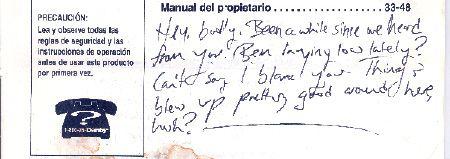 Manual del propietario . . . . . . . . . . . . . . . . . . . . . 33-48
PRECAUCIÓN:
Lea y observe todas las
reglas de seguridad y las
instrucciones de operación
antes de usar este producto
por primera vez.
?
Hey, buddy. Been a while since we heard
from you. Been laying low lately?
Can't say I blame you. Things
blew up pretty good around here,
huh?